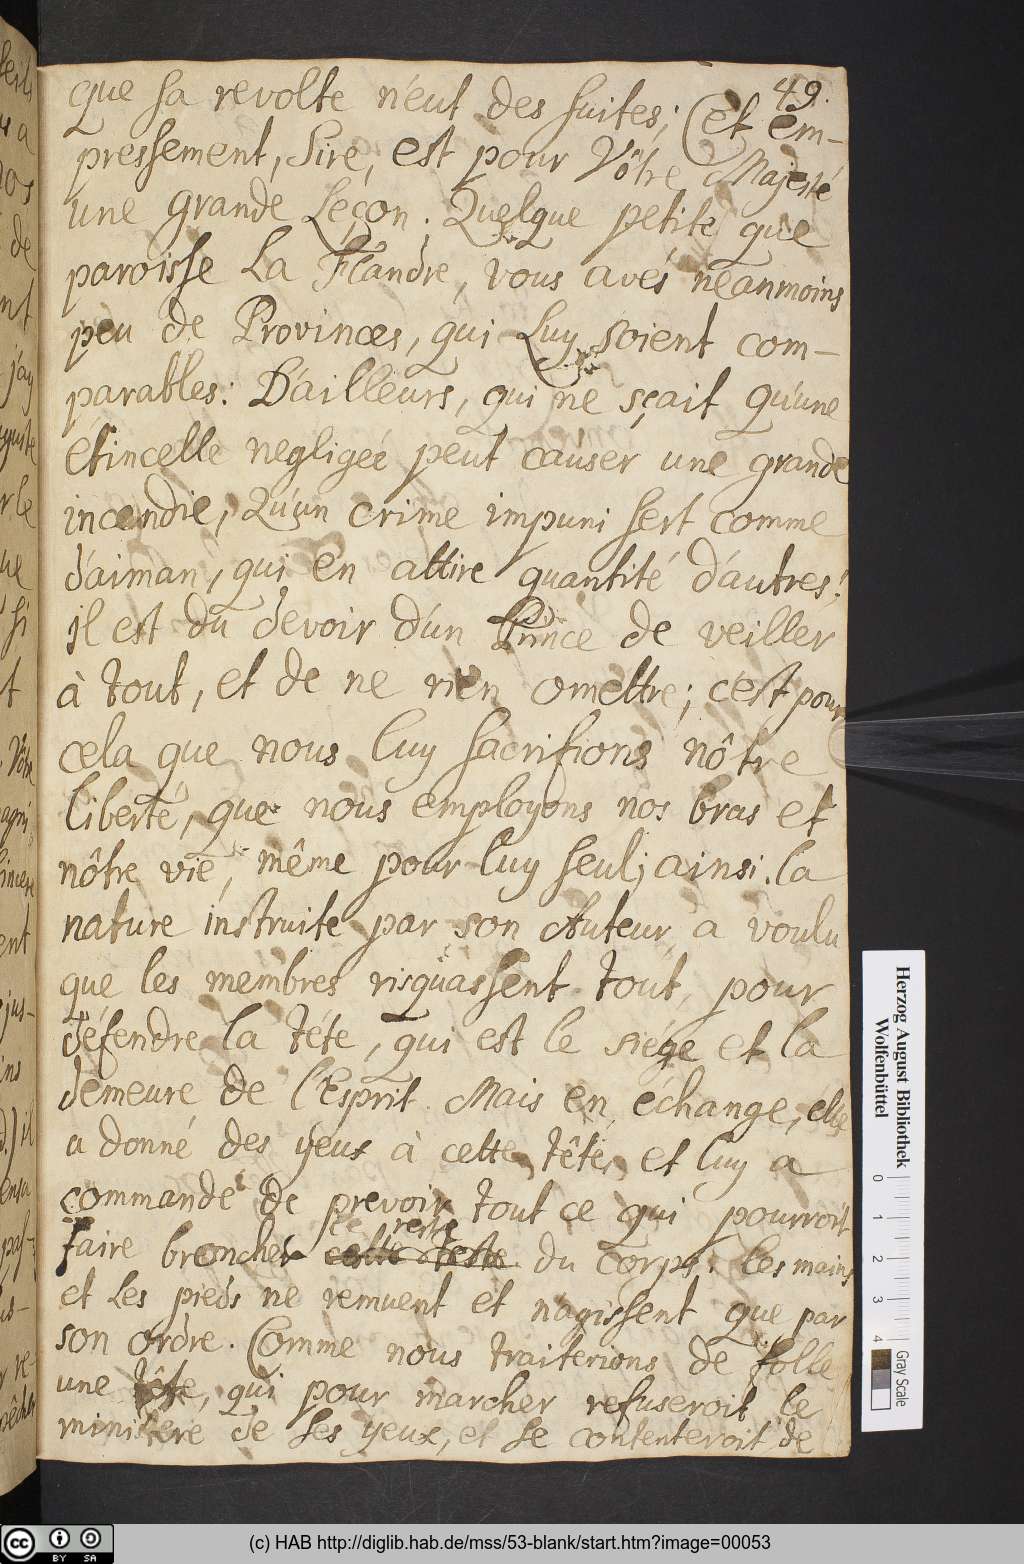 49.
que sa revolte n'eut des suites; (et em-
pressement, Sire, est pour Vôtre Majesté
une grande Leçon. Quelque petite que
paroisse La Flandre, vous avés néanmoins
peu de Provinces, qui Luy soient com-
parables: D'ailleurs, qui ne sçait qu'une
étincelle negligée peut causer une grande
incendie, Qu'un crime impuni sert comme
d'aiman, qui en attire quantité d'autres;
il est du devoir d'un Prince de veiller
à tout, et de ne rien omettre; c'est pour
cela que nous luy sacrifions nôtre
liberté, que nous employons nos bras et
nôtre vie, même pour luy seul; ainsi la
nature instruite par son Auteur a voulu
que les membres risquassent tout, pour
défendre la téte, qui est le siége et la
demeure de l'Esprit. Mais en échange, elle
a donné des yeux à cette tête, et luy a
commandé de prevoir tout ce qui pourroit
le reste
faire broncher cette teste du corps. les mains
et les pieds ne remuent et n'agissent que par
son ordre. Comme nous traiterions de folle
une tête qui pour marcher refuseroit le
ministere de ses yeux, et se contenteroit de
Herzog August Bibliothek
Wolfenbüttel
0 1 2 3 4
Gray Scale
(c) HAB http://diglib.hab.de/mss/53-blank/start.htm?image=00053